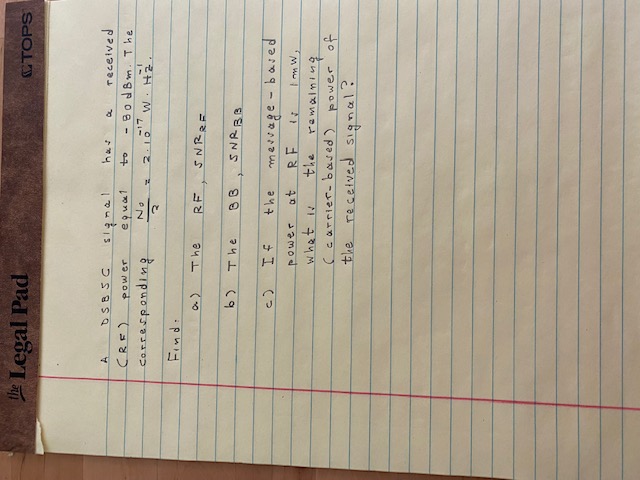 the Legal Pad
TOPS
A DSBSC signal has a received
(RF) power equal to -80dBm. The
corresponding No/2 = 2.10^-17 W.Hz^-1.
Find:
a) The RF, SNR_RF
b) The BB, SNR_BB
c) If the message-based
power at RF is 1mW,
what is the remaining
(carrier-based) power of
the received signal?